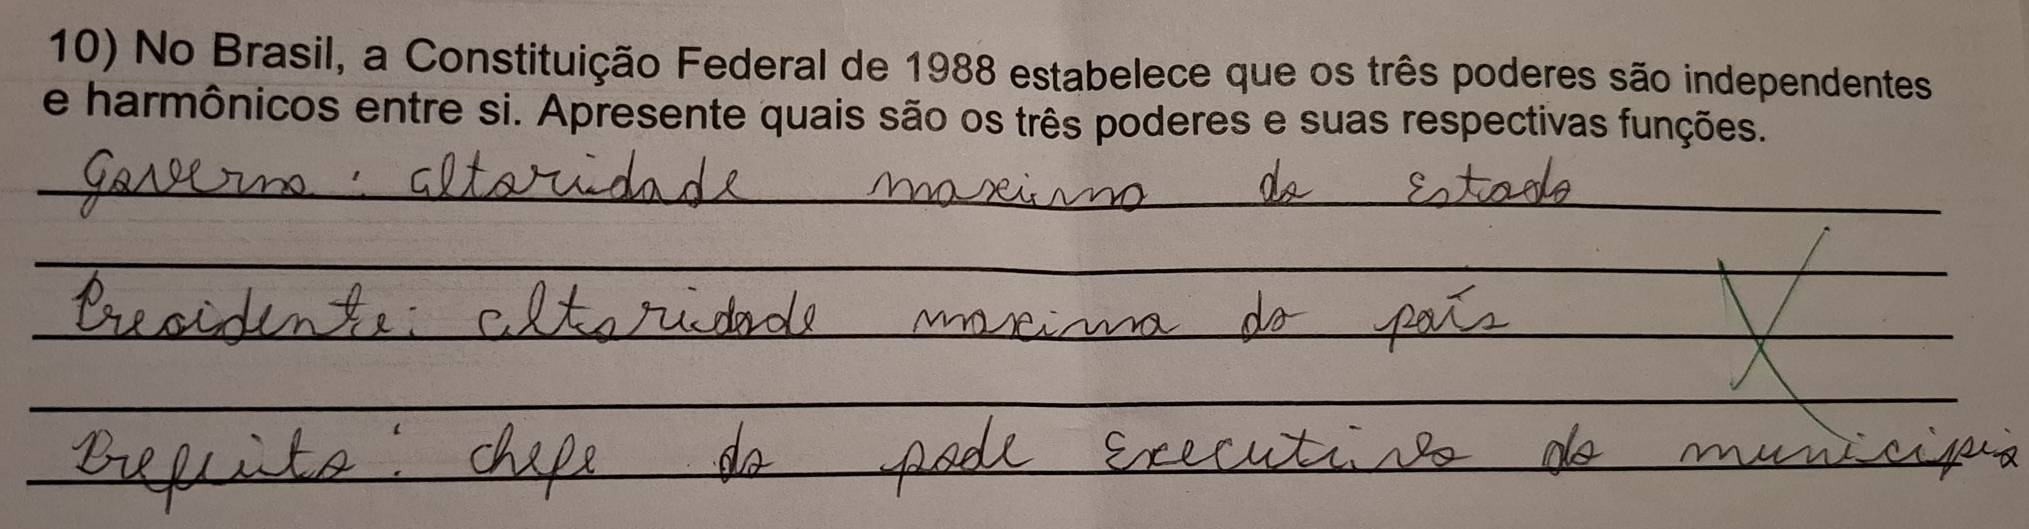 10) No Brasil, a Constituição Federal de 1988 estabelece que os três poderes são independentes
e harmônicos entre si. Apresente quais são os três poderes e suas respectivas funções.
Governo: altoridade maximo do Estado
Presidente: altoridade maxima do país
Prefeito: chefe do pode Executivo do municipio